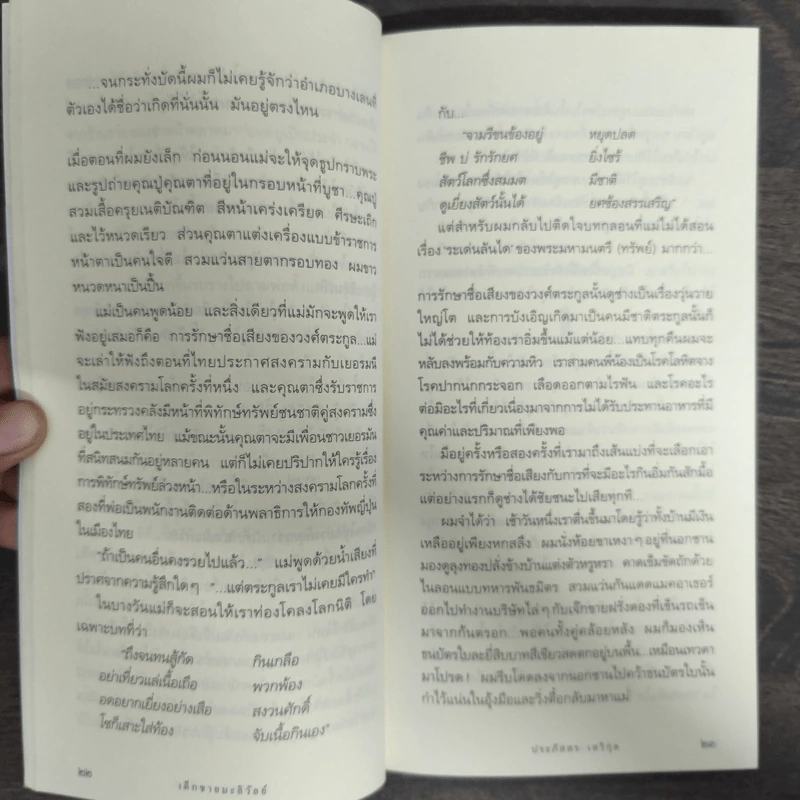 ...จนกระทั่งบัดนี้ผมก็ไม่เคยรู้จักว่าอำเภอบางเลนที่
ตัวเองได้ชื่อว่าเกิดที่นั่นนั้น มันอยู่ตรงไหน
เมื่อตอนที่ผมยังเล็ก ก่อนนอนแม่จะให้จุดธูปกราบพระ
และรูปถ่ายคุณปู่คุณตาที่อยู่ในกรอบหน้าที่บูชา...คุณปู่
สวมเสื้อครุยเนติบัณฑิต สีหน้าเคร่งเครียด ศีรษะเถิก
และไว้หนวดเรียว ส่วนคุณตาแต่งเครื่องแบบข้าราชการ
หน้าตาเป็นคนใจดี สวมแว่นสายตากรอบทอง ผมขาว
หนวดหนาเป็นปื้น
แม่เป็นคนพูดน้อย และสิ่งเดียวที่แม่มักจะพูดให้เรา
ฟังอยู่เสมอก็คือ การรักษาชื่อเสียงของวงศ์ตระกูล...แม่
จะเล่าให้ฟังถึงตอนที่ไทยประกาศสงครามกับเยอรมนี
ในสมัยสงครามโลกครั้งที่หนึ่ง และคุณตาซึ่งรับราชการ
อยู่กระทรวงคลังมีหน้าที่พิทักษ์ทรัพย์ชนชาติคู่สงครามซึ่ง
อยู่ในประเทศไทย แม้ขณะนั้นคุณตาจะมีเพื่อนชาวเยอรมัน
ที่สนิทสนมกันอยู่หลายคน แต่ก็ไม่เคยปริปากให้ใครรู้เรื่อง
การพิทักษ์ทรัพย์ล่วงหน้า...หรือในระหว่างสงครามโลกครั้งที่
สองที่พ่อเป็นพนักงานติดต่อด้านพลาธิการให้กองทัพญี่ปุ่น
ในเมืองไทย
"ถ้าเป็นคนอื่นคงรวยไปแล้ว..." แม่พูดด้วยน้ำเสียงที่
ปราศจากความรู้สึกใดๆ "...แต่ตระกูลเราไม่เคยมีใครทำ"
ในบางวันแม่ก็จะสอนให้เราท่องโคลงโลกนิติ โดย
เฉพาะบทที่ว่า
"ถึงจนทนสู้กัด กินเกลือ
อย่าเที่ยวแล่เนื้อเถือ พวกพ้อง
อดอยากเยี่ยงอย่างเสือ สงวนศักดิ์
โซก็เสาะใส่ท้อง จับเนื้อกินเอง"
๒๒
เด็กชายมะลิวัลย์
กับ...
"จามรีขนข้องอยู่ หยุดปลด
ชีพ บ่ รักรักยศ ยิ่งไซร้
สัตว์โลกซึ่งสมมต มีชาติ
ดูเยี่ยงสัตว์นั้นได้ ยศซ้องสรรเสริญ"
แต่สำหรับผมกลับไปติดใจบทกลอนที่แม่ไม่ได้สอน
เรื่อง 'ระเด่นลันได' ของพระมหามนตรี (ทรัพย์) มากกว่า...
การรักษาชื่อเสียงของวงศ์ตระกูลนั้นดูช่างเป็นเรื่องวุ่นวาย
ใหญ่โต และการบังเอิญเกิดมาเป็นคนมีชาติตระกูลนั้นก็
ไม่ได้ช่วยให้ท้องเราอิ่มขึ้นแม้แต่น้อย...แทบทุกคืนผมจะ
หลับลงพร้อมกับความหิว เราสามคนพี่น้องเป็นโรคโลหิตจาง
โรคปากนกกระจอก เลือดออกตามไรฟัน และโรคอะไร
ต่อมิอะไรที่เกี่ยวเนื่องมาจากการไม่ได้รับประทานอาหารที่มี
คุณค่าและปริมาณที่เพียงพอ
มีอยู่ครั้งหรือสองครั้งที่เรามาถึงเส้นแบ่งที่จะเลือกเอา
ระหว่างการรักษาชื่อเสียงกับการที่จะมีอะไรกินอิ่มกันสักมื้อ
แต่อย่างแรกก็ดูช่างได้ชัยชนะไปเสียทุกที...
ผมจำได้ว่า เช้าวันหนึ่งเราตื่นขึ้นมาโดยรู้ว่าทั้งบ้านมีเงิน
เหลืออยู่เพียงหกสลึง ผมนั่งห้อยขาเหงาๆ อยู่ที่นอกชาน
มองดูลุงทองปลั่งข้างบ้านแต่งตัวหรูหรา คาดเข็มขัดถักด้วย
ไนลอนแบบทหารพันธมิตร สวมแว่นกันแดดแมคอาเธอร์
ออกไปทำงานบริษัทไล่ๆ กับเจ๊กขายฝรั่งดองที่เข็นรถเข็น
มาจากก้นตรอก... พอคนทั้งคู่คล้อยหลัง ผมก็มองเห็น
ธนบัตรใบละยี่สิบบาทสีเขียวสดตกอยู่บนพื้น...เหมือนเทวดา
มาโปรด! ผมรีบโดดลงจากนอกชานไปคว้าธนบัตรใบนั้น
กำไว้แน่นในอุ้งมือและวิ่งตื๋อกลับมาหาแม่
ประภัสสร เสวิกุล
๒๓